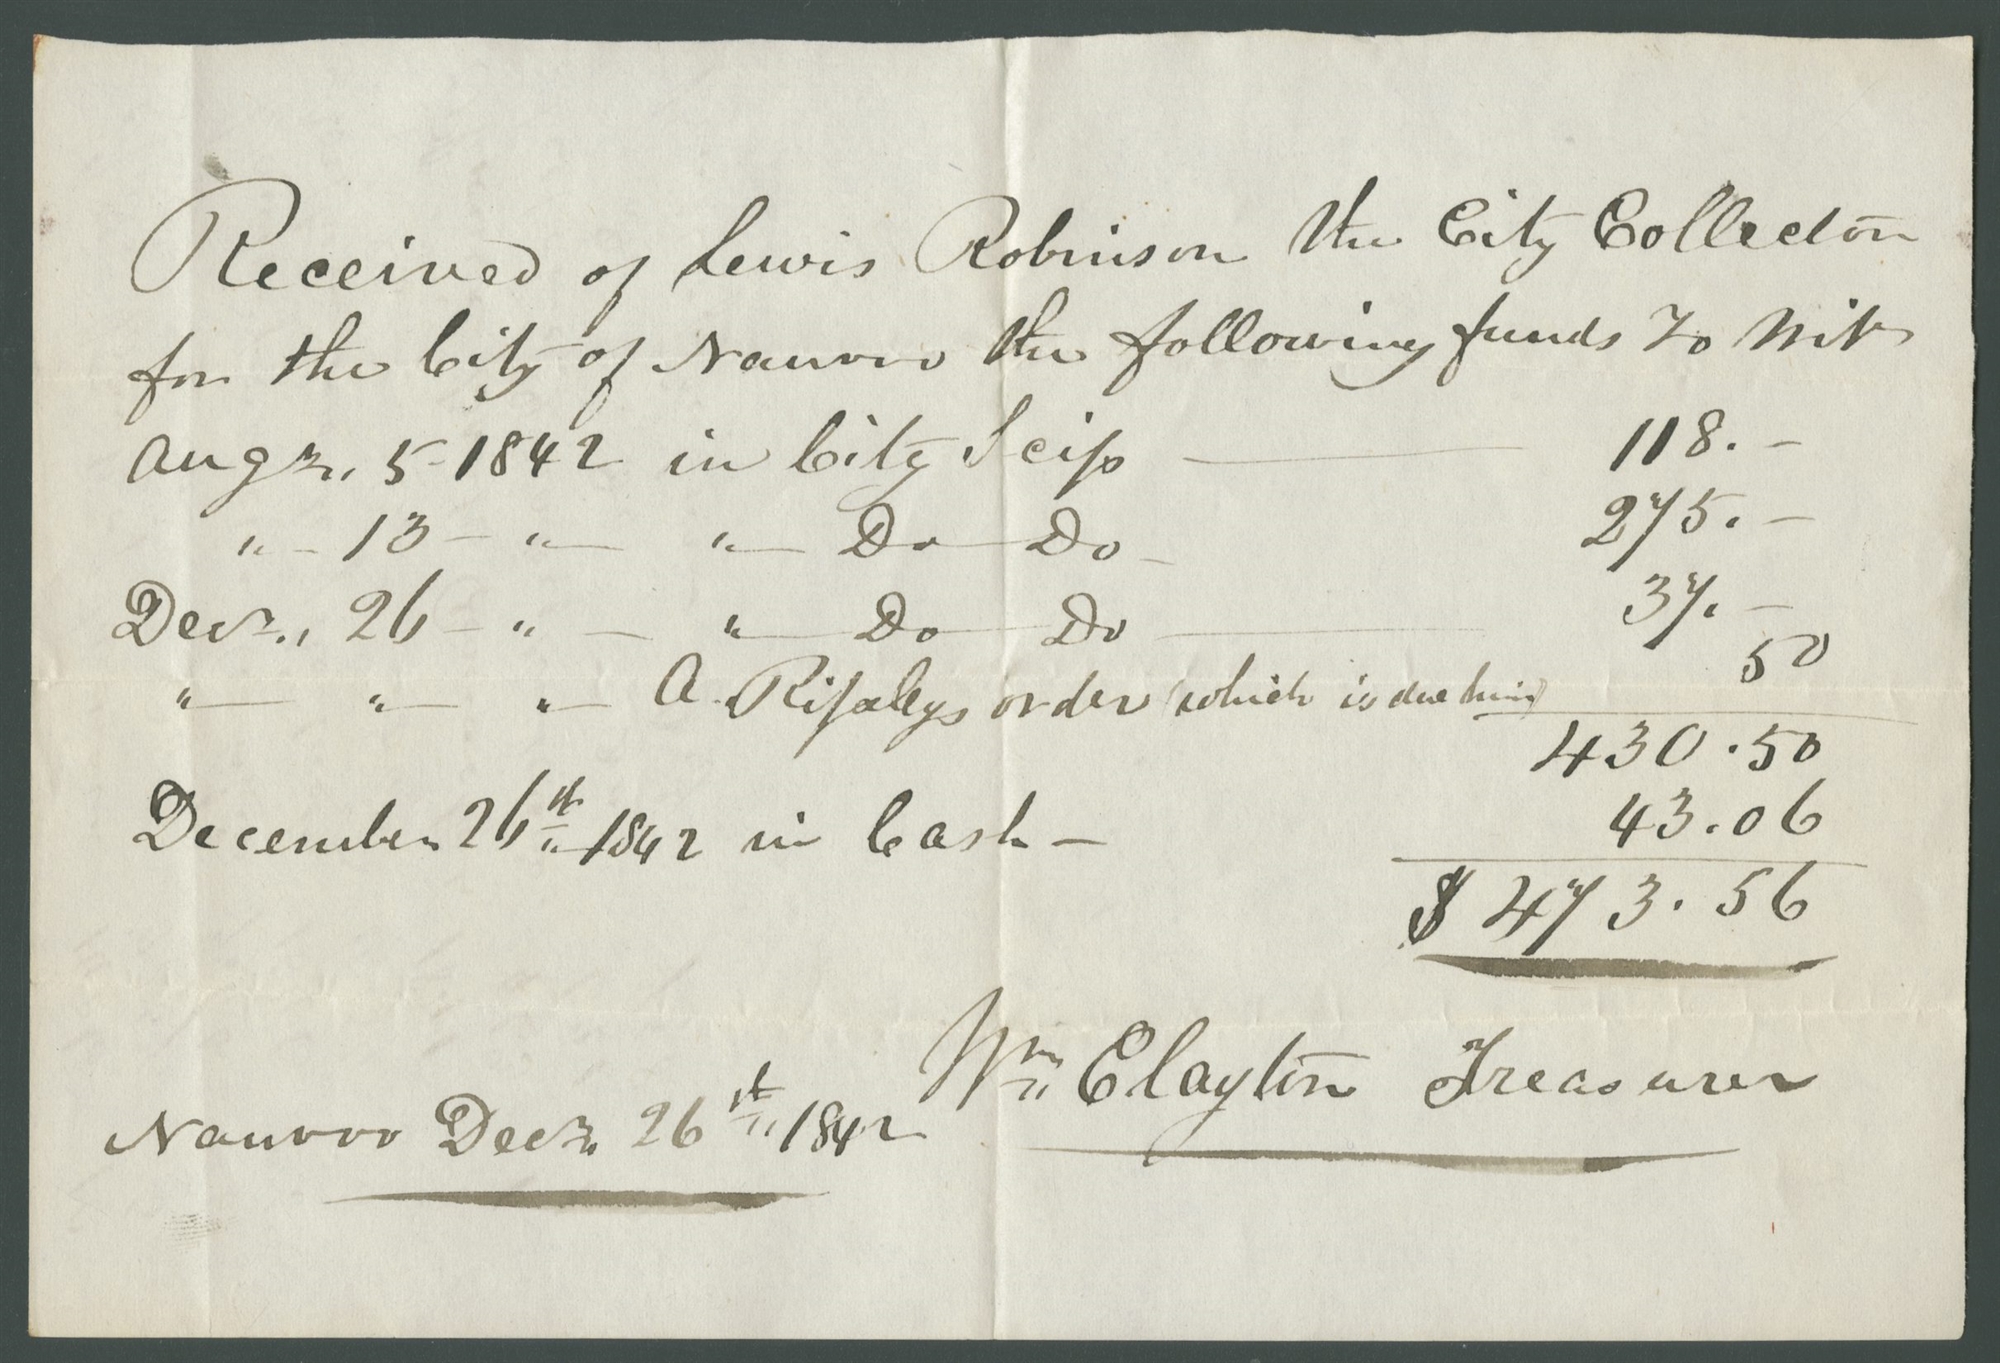 Received of Lewis Robinson the City Collector
for the City of Nauvoo the following funds To Wit
Augt. 5 1842 in City Scip — 118.–
" – 13 – " — " — Do — Do – 275.–
Decr., 26 – " — " — Do — Do — 37.–
" — " — " — A. Ripley's order (which is due him) 50
430.50
December 26th 1842 in Cash – 43.06
$ 473.56
Wm Clayton Treasurer
Nauvoo Decr. 26th 1842